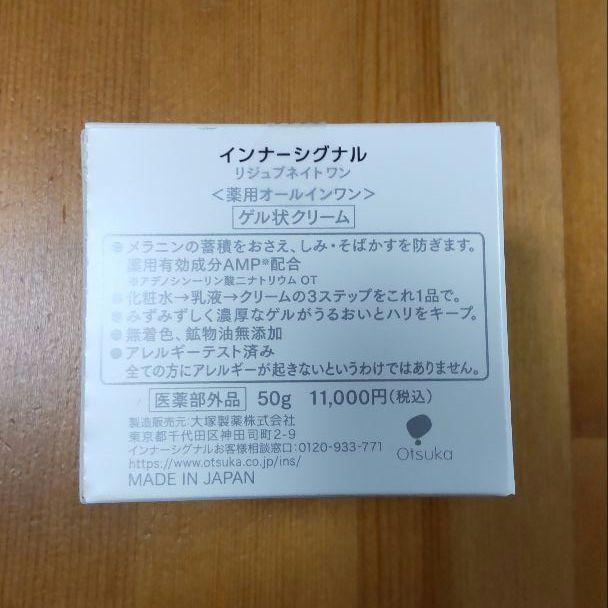 インナーシグナル
リジュブネイトワン
＜薬用オールインワン＞
ゲル状クリーム
●メラニンの蓄積をおさえ、しみ・そばかすを防ぎます。
薬用有効成分AMP※配合
※アデノシン一リン酸二ナトリウム OT
●化粧水→乳液→クリームの3ステップをこれ1品で。
●みずみずしく濃厚なゲルがうるおいとハリをキープ。
●無着色、鉱物油無添加
●アレルギーテスト済み
全ての方にアレルギーが起きないというわけではありません。
医薬部外品 50g 11,000円(税込)
製造販売元:大塚製薬株式会社
東京都千代田区神田司町2-9
インナーシグナルお客様相談窓口:0120-933-771
https://www.otsuka.co.jp/ins/
MADE IN JAPAN
Otsuka